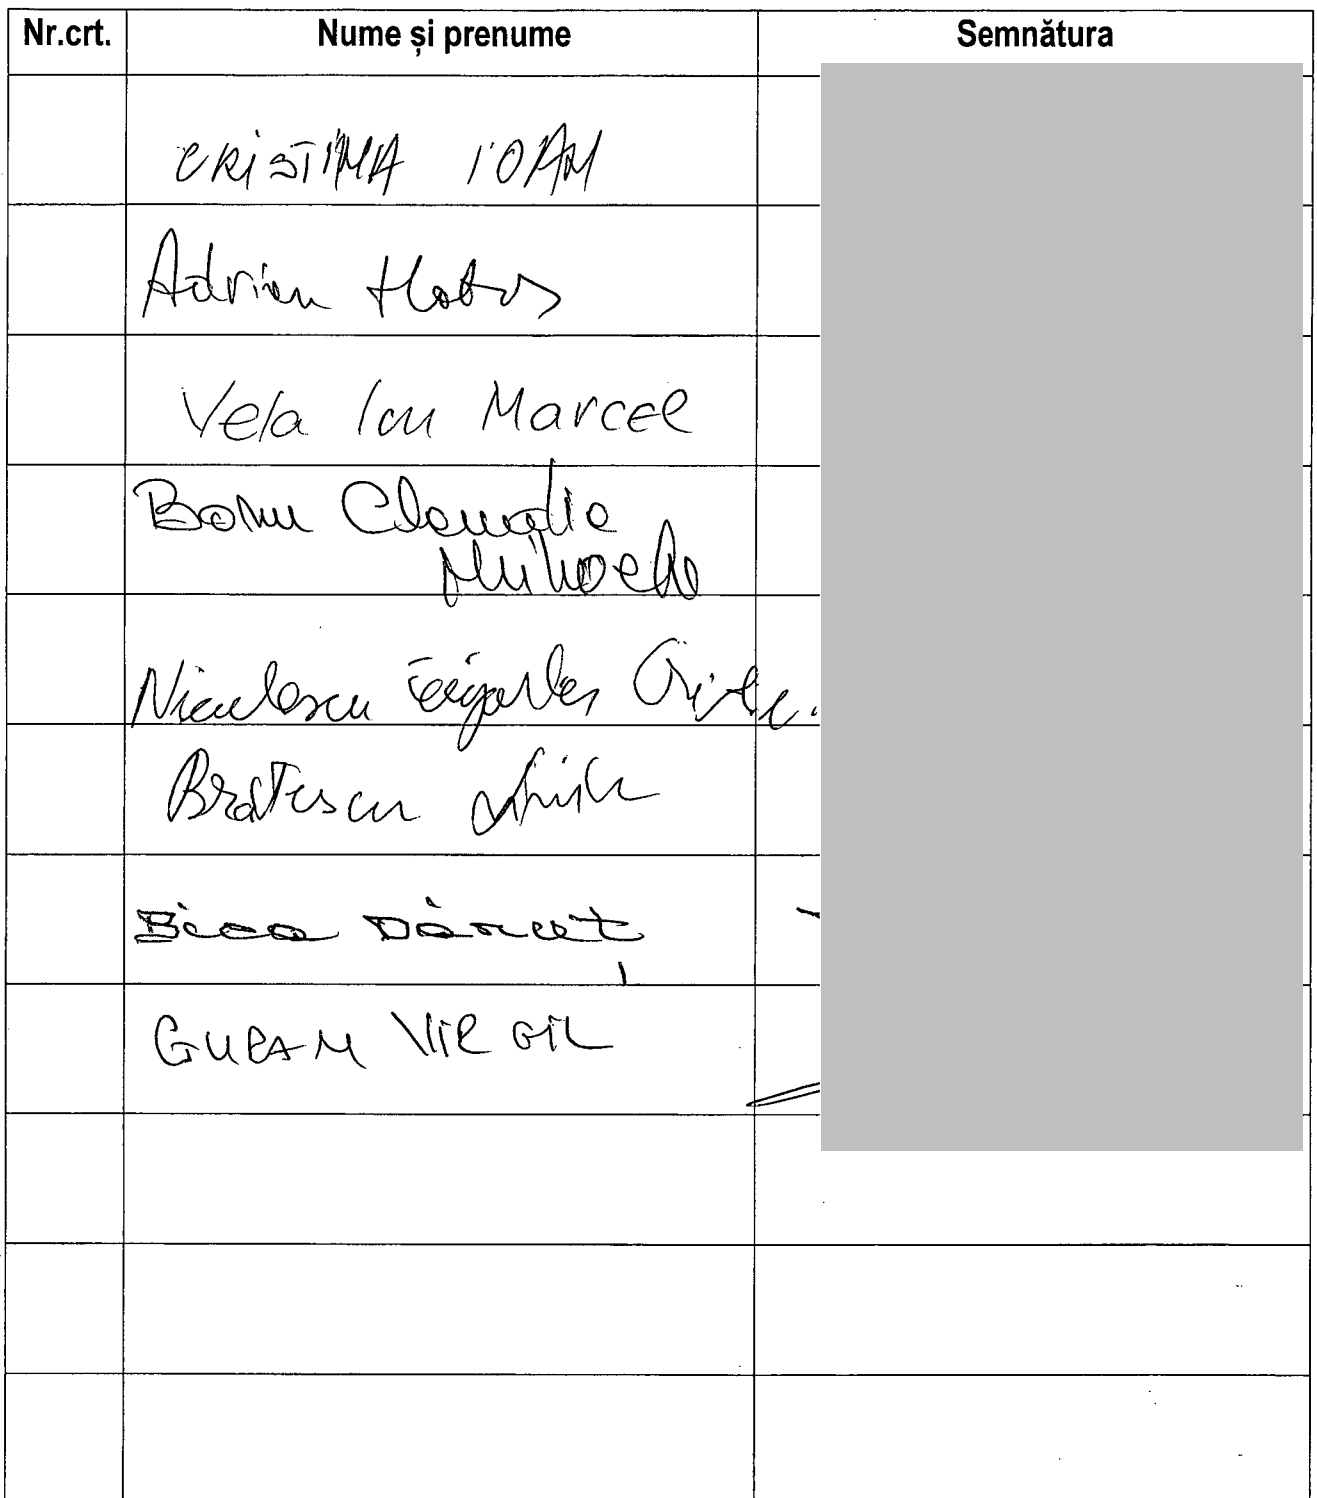 Nr.crt. Nume și prenume Semnătura
CRISTINA IOAN
Adrian Hatos
Vela Ion Marcel
Boțiu Claudia
Mihaela
Niculescu Țâgârlaș Cristian
Brătescu
Bica Dănuț
GURAN VIRGIL